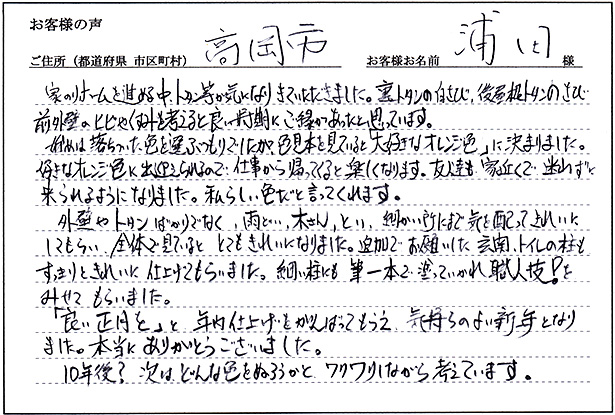 お客様の声
ご住所（都道府県 市区町村） 高岡市 お客様お名前 浦田 様
家のリホームを進める中、トタン等が気になりきていただきました。裏トタンの白さび、後屋根トタンのさび
前外壁のヒビや を考えると良い時期にご縁があったと思っています。
始めは落ちついた色を選ぶつもりでしたが、色見本を見ていると大好きな「オレンジ色」に決まりました。
好きなオレンジ色に出迎えられるので、仕事から帰ってくると楽しくなります。友達も家近くで迷わずに
来られるようになりました。私らしい色だと言ってくれます。
外壁やトタンばかりでなく、雨どい、木さん、とい、細かい所にまで気を配ってきれいに
してもらい、全体で見ていると とてもきれいになりました。追加でお願いした玄関、トイレの柱も
すっきりときれいに仕上げてもらいました。細い柱にも筆一本で塗っていかれ職人技!を
みせてもらいました。
「良い正月を」と 年内仕上げをがんばってもらえ 気持ちのよい新年となり
ました。本当にありがとうございました。
10年後? 次は、どんな色をぬろうかと ワクワクしながら考えています。